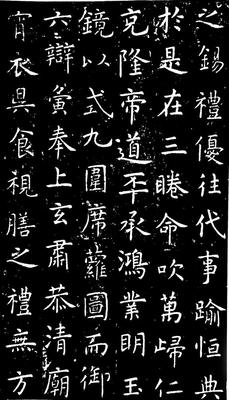 之錫禮優往代事踰恒典
於是在三睠命吹萬歸仁
克隆帝道丕承鴻業明玉
鏡以式九圍席蘿圖而御
六辯寅奉上玄肅恭清廟
宵衣昃食視膳之禮無方